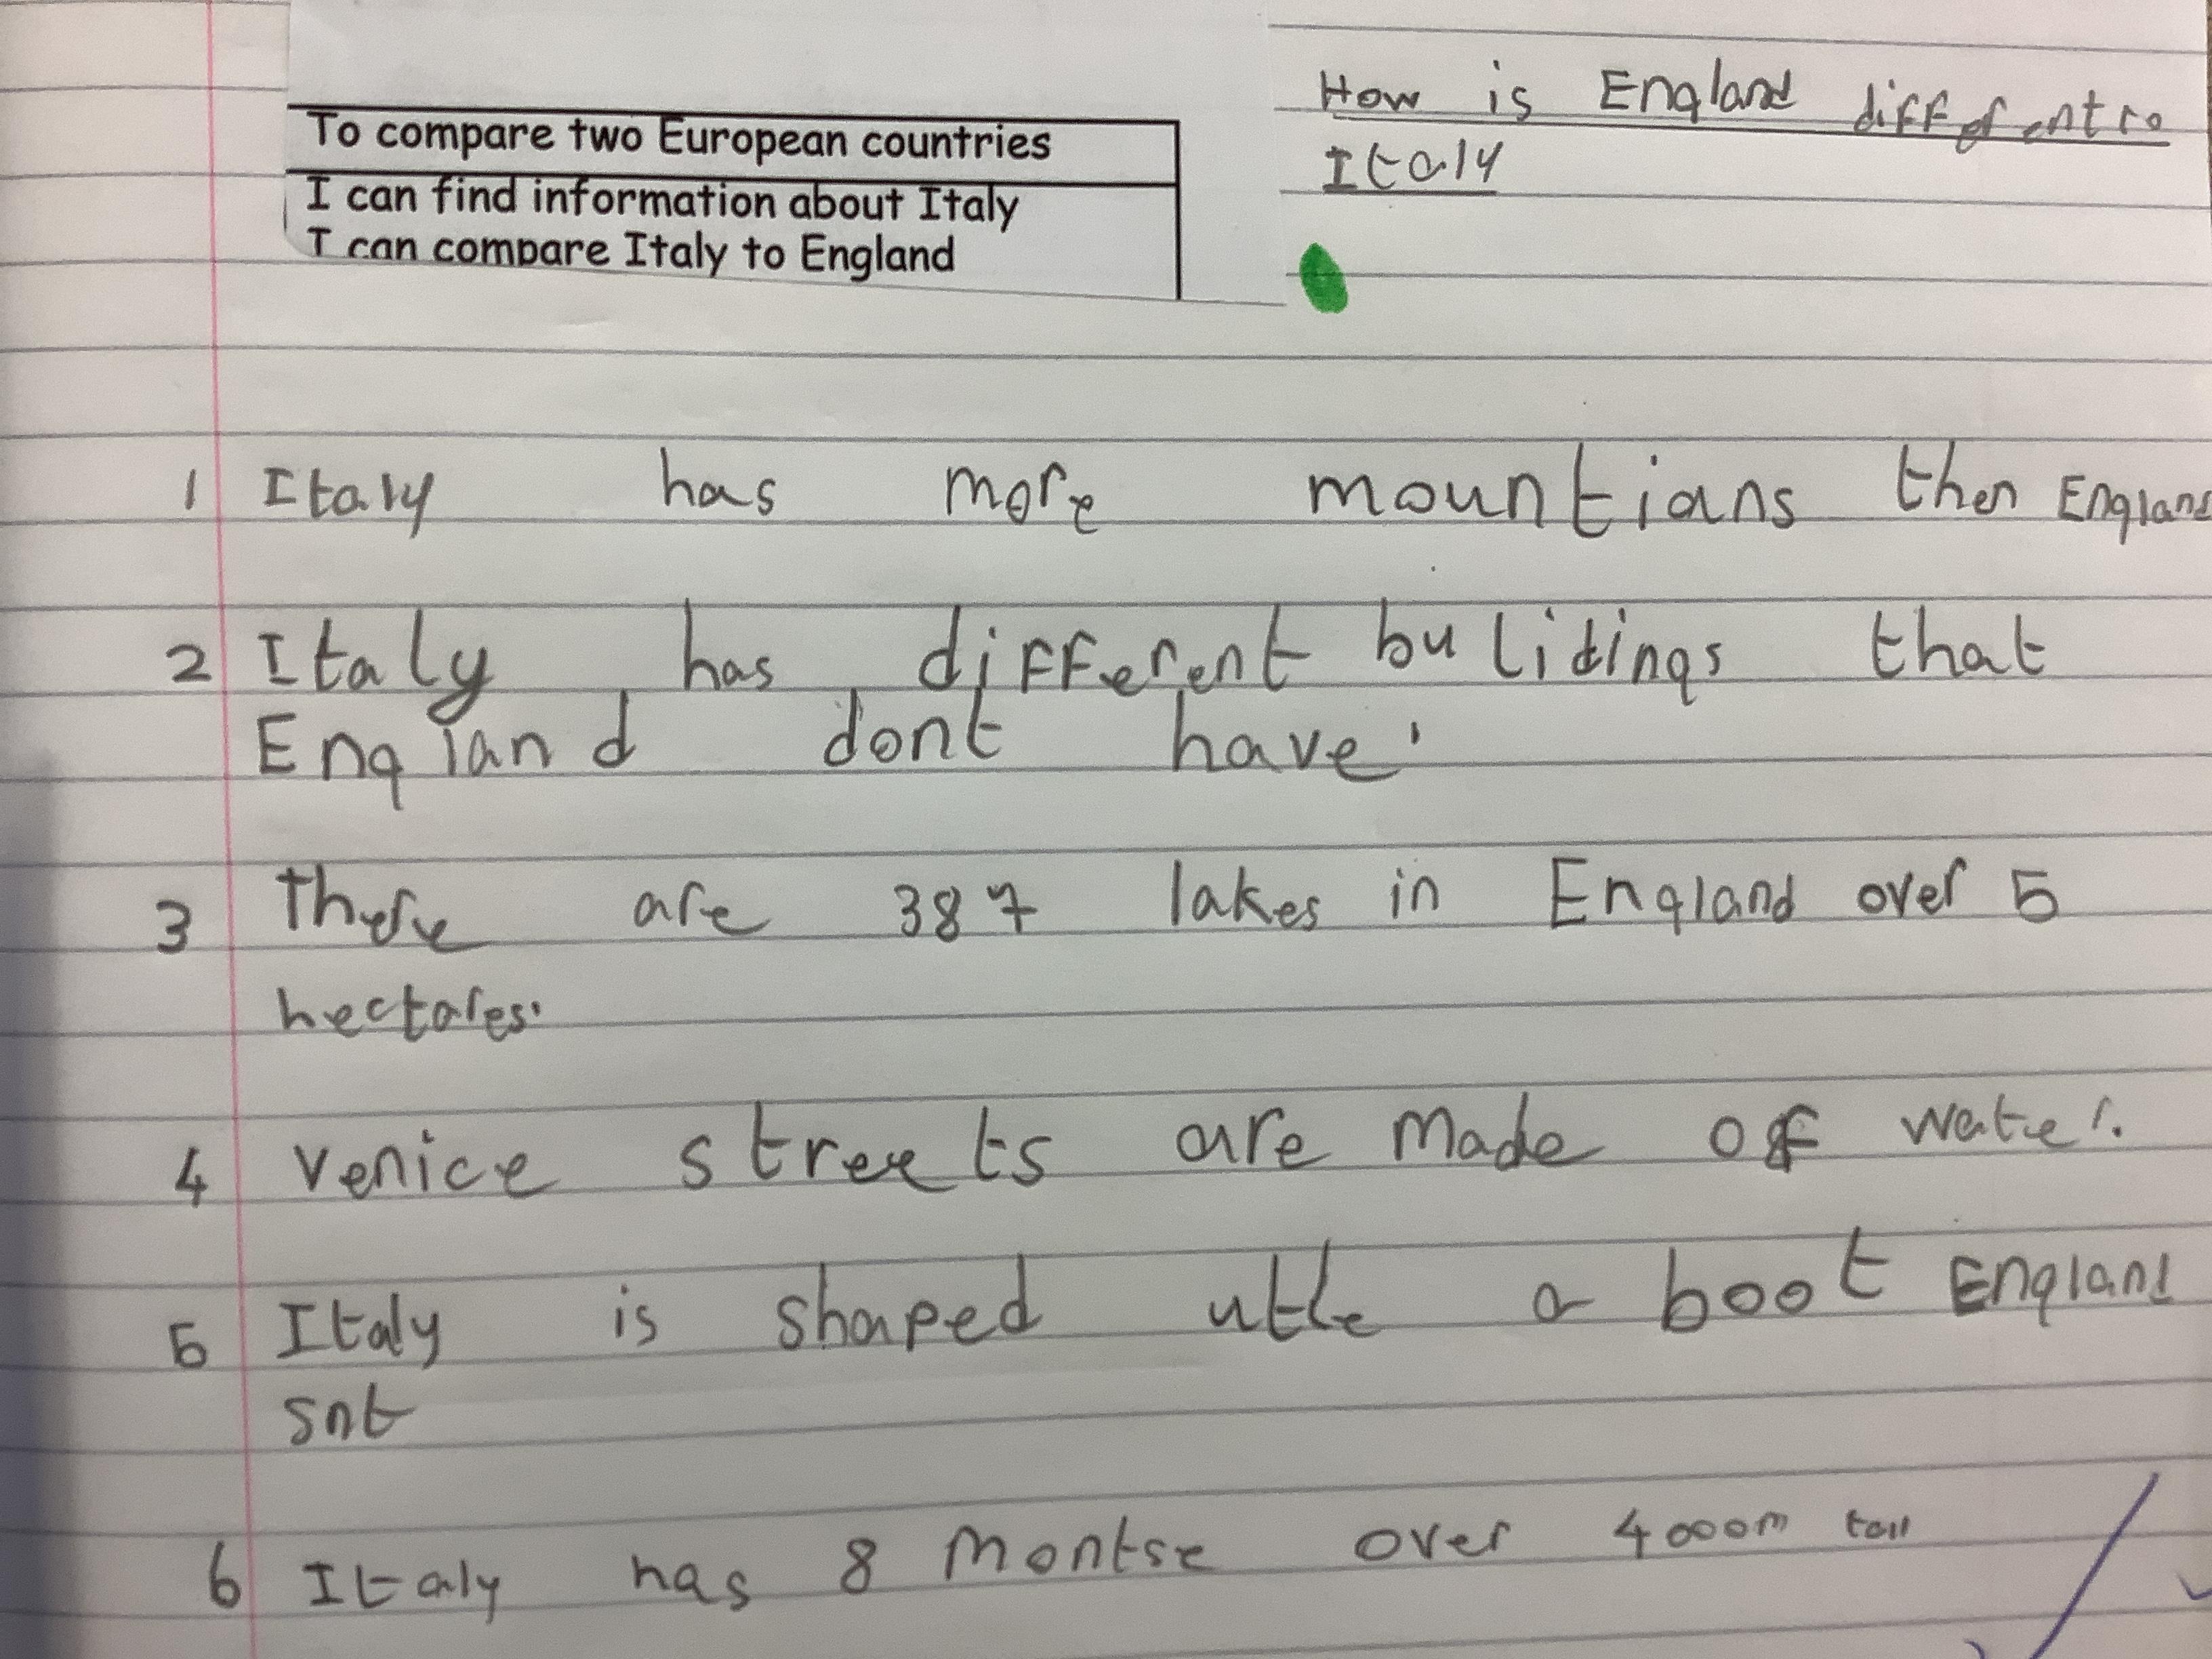 To compare two European countries
I can find information about Italy
I can compare Italy to England
How is England different to
Italy
1 Italy has more mountians then England
2 Italy has different bulidings that
England dont have.
3 There are 387 lakes in England over 5
hectares.
4 Venice streets are made of water.
5 Italy is shaped a boot England
snt
6 Italy has 8 Montse over 4000m tall